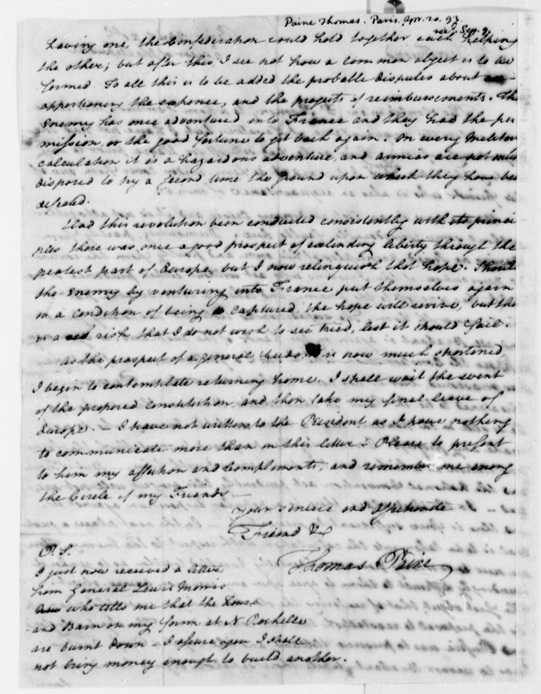 Paine Thomas. Paris. Apr. 20. 93.
recd Sep. 9.
having one, the Confederation could hold together each helping
the other; but after this I see not how a common object is to be
formed. To all this is to be added the probable disputes about
apportioning the expence, and the projects of reimbursements. The
Enemy has once adventured into France and they had the per
mission or the good fortune to get back again. On every Military
calculation it is a hazardous adventure and armies are not
disposed to try a second time the ground upon which they have been
defeated.
Had this revolution been conducted consistently with its princi
ples there was once a good prospect of extending liberty through the
greatest part of Europe, but I now relinquish that hope. Should
the Enemy by venturing into France put themselves again
in a condition of being captured, the hope will revive, but this
is a risk that I do not wish to see tried, lest it should fail.
As the prospect of a general freedom is now much shortened,
I begin to contemplate returning home. I shall wait the event
of the proposed Constitution, and then take my final leave of
Europe. I have not written to the President as I have nothing
to communicate more than in this letter. Please to present
to him my affection and Compliments, and remember me among
the Circle of my Friends
Your sincere and affectionate
Friend &
Thomas Paine
P.S.
I just now received a letter
from General Lewis Morris
who tells me that the house
and Barn on my farm at N. Rochelle
are burnt down. I assure you I shall
not bring money enough to build another.